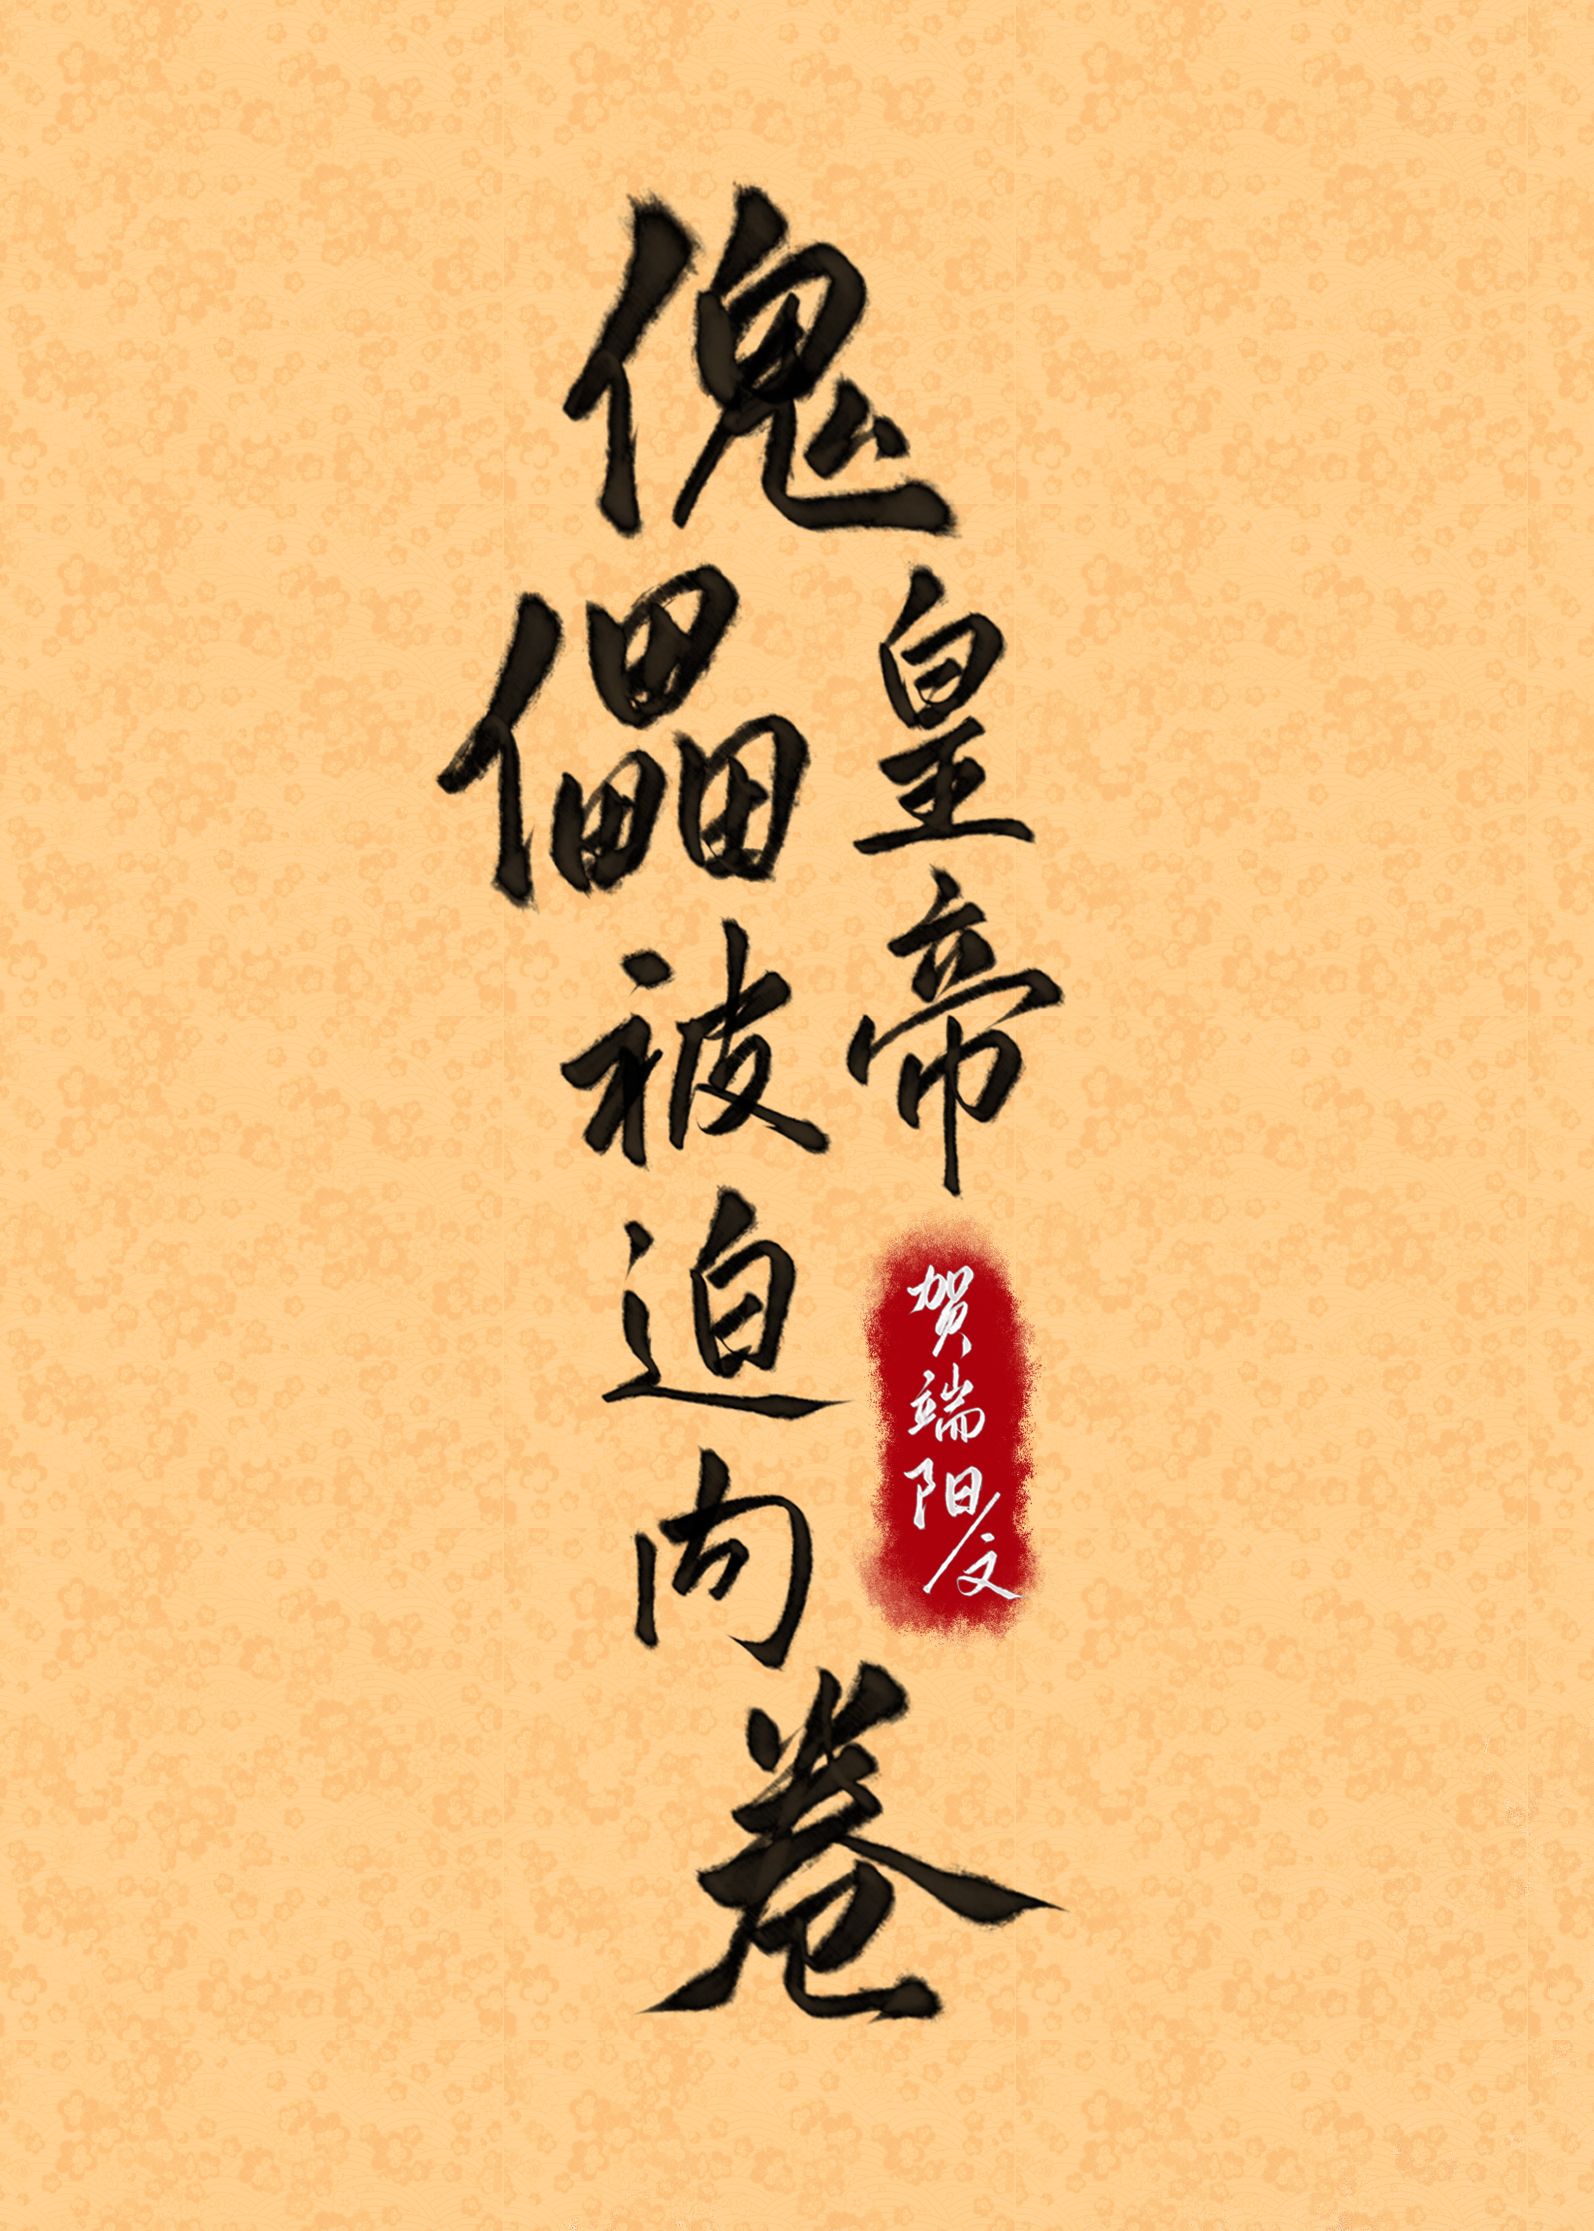 傀儡
皇帝
被迫向卷
贺端阳/文